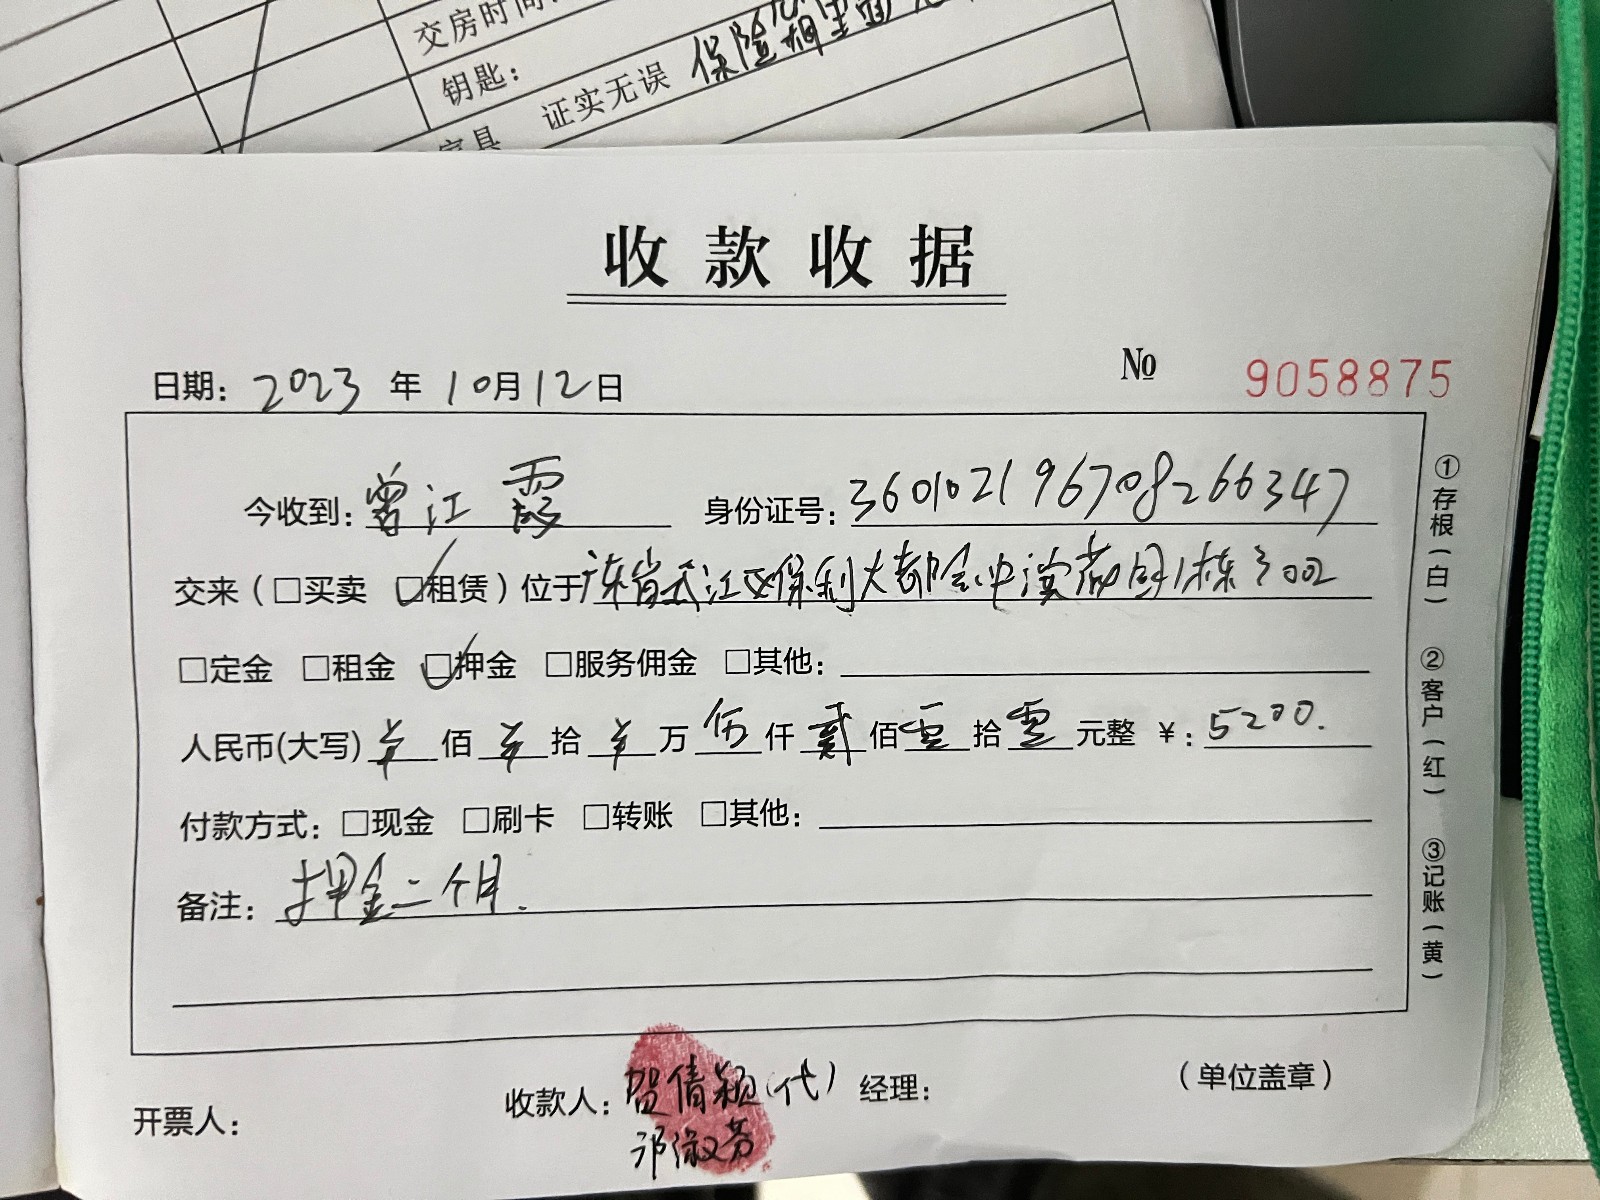 交房时间:
钥匙:
证实无误 保险相
家具
收款收据
日期: 2023 年 10月12日
№ 9058875
今收到: 曾江霞 身份证号: 360102196708266347
交来(□买卖 ☑租赁)位于广东省 江 保利大都会 1栋3002
□定金 □租金 ☑押金 □服务佣金 □其他:
人民币(大写) ¥ 佰 ¥ 拾 ¥ 万 伍 仟 贰 佰 零 拾 零 元整 ¥: 5200.
付款方式: □现金 □刷卡 □转账 □其他:
备注: 押金二个月.
①存根(白) ②客户(红) ③记账(黄)
开票人: 收款人: 贺倩颖(代) 经理: (单位盖章)
邓淑芳